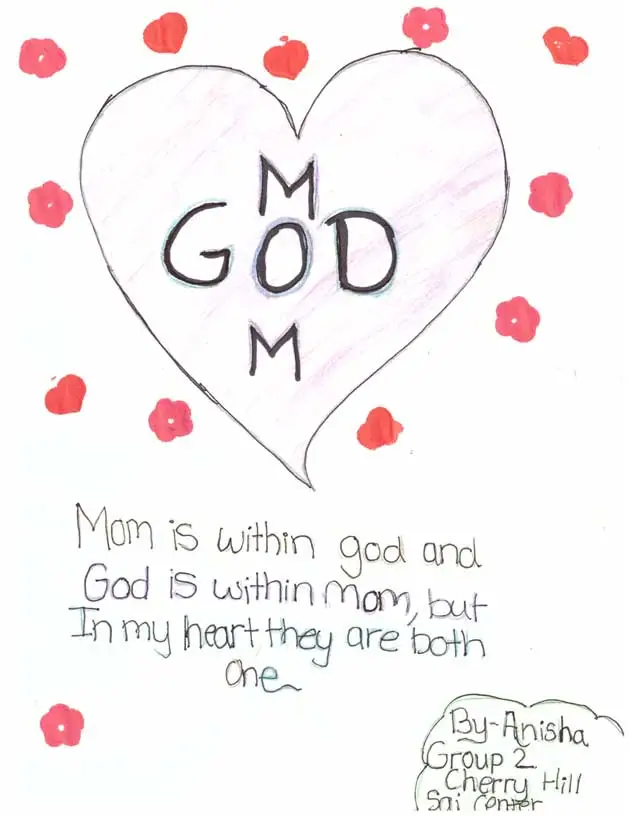 M
GOD
M
Mom is within god and
God is within Mom, but
In my heart they are both
one
By-Anisha
Group 2
Cherry Hill
Sai Center